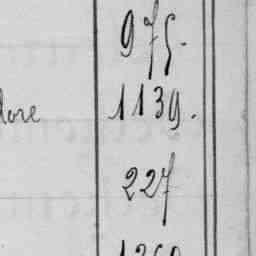 975.
dore 1139.
227